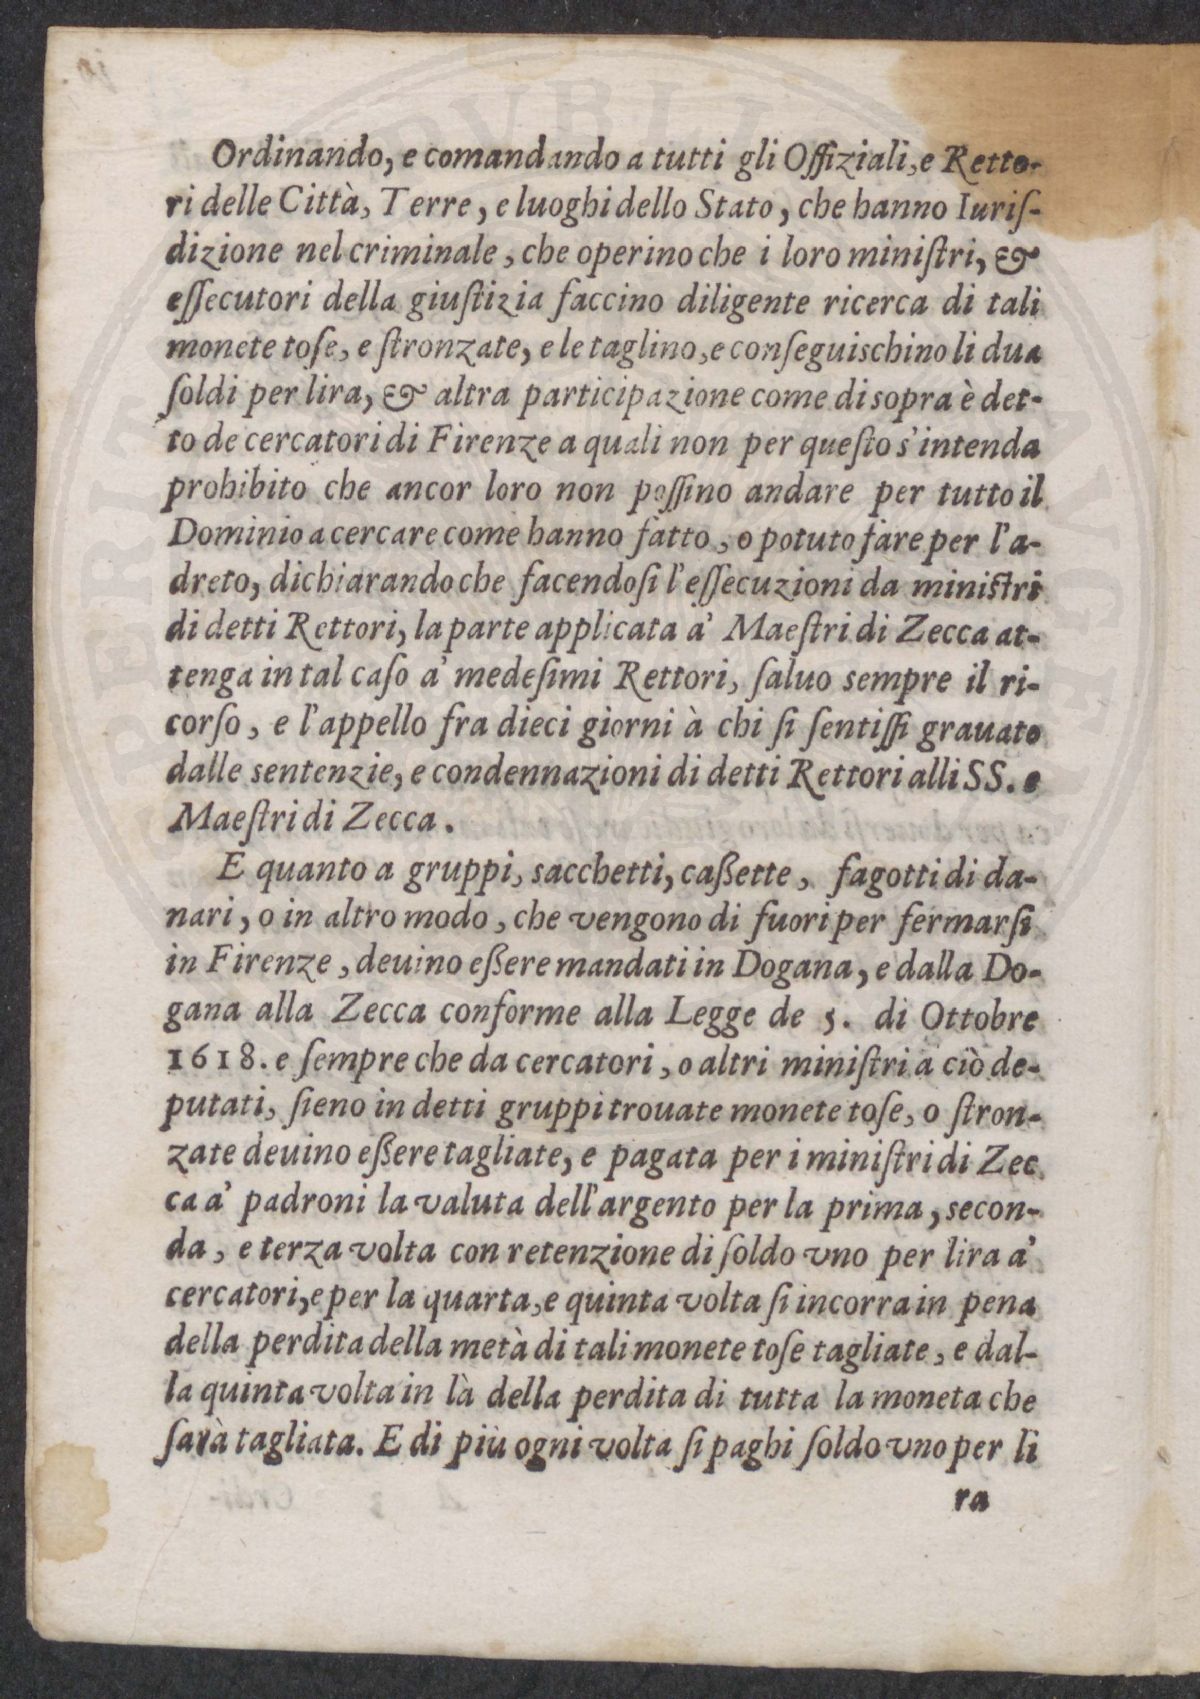 Ordinando, e comandando a tutti gli Offiziali, e Retto-
ri delle Città, Terre, e luoghi dello Stato, che hanno Iuriſ-
dizione nel criminale, che operino che i loro miniſtri, &
eſſecutori della giuſtizia faccino diligente ricerca di tali
monete toſe, e ſtronzate, e le taglino, e conſeguischino li dua
ſoldi per lira, & altra participazione come di sopra è det-
to de cercatori di Firenze a quali non per queſto s'intenda
prohibito che ancor loro non poſſino andare per tutto il
Dominio a cercare come hanno fatto, o potuto fare per l'a-
dreto, dichiarando che facendoſi l'eſſecuzioni da miniſtri
di detti Rettori, la parte applicata a' Maeſtri di Zecca at-
tenga in tal caſo a' medeſimi Rettori, ſaluo sempre il ri-
corſo, e l'appello fra dieci giorni à chi ſi ſentiſſi grauato
dalle sentenzie, e condennazioni di detti Rettori alli SS. e
Maeſtri di Zecca.
E quanto a gruppi, sacchetti, caßette, fagotti di da-
nari, o in altro modo, che vengono di fuori per fermarſi
in Firenze, deuino eßere mandati in Dogana, e dalla Do-
gana alla Zecca conforme alla Legge de 5. di Ottobre
1618. e ſempre che da cercatori, o altri miniſtri a ciò de-
putati, ſieno in detti gruppi trouate monete toſe, o ſtron-
zate deuino eßere tagliate, e pagata per i miniſtri di Zec
ca a' padroni la valuta dell'argento per la prima, secon-
da, e terza volta con retenzione di ſoldo vno per lira a'
cercatori, e per la quarta, e quinta volta ſi incorra in pena
della perdita della metà di tali monete toſe tagliate, e dal-
la quinta volta in là della perdita di tutta la moneta che
ſarà tagliata. E di più ogni volta ſi paghi ſoldo vno per li
ra